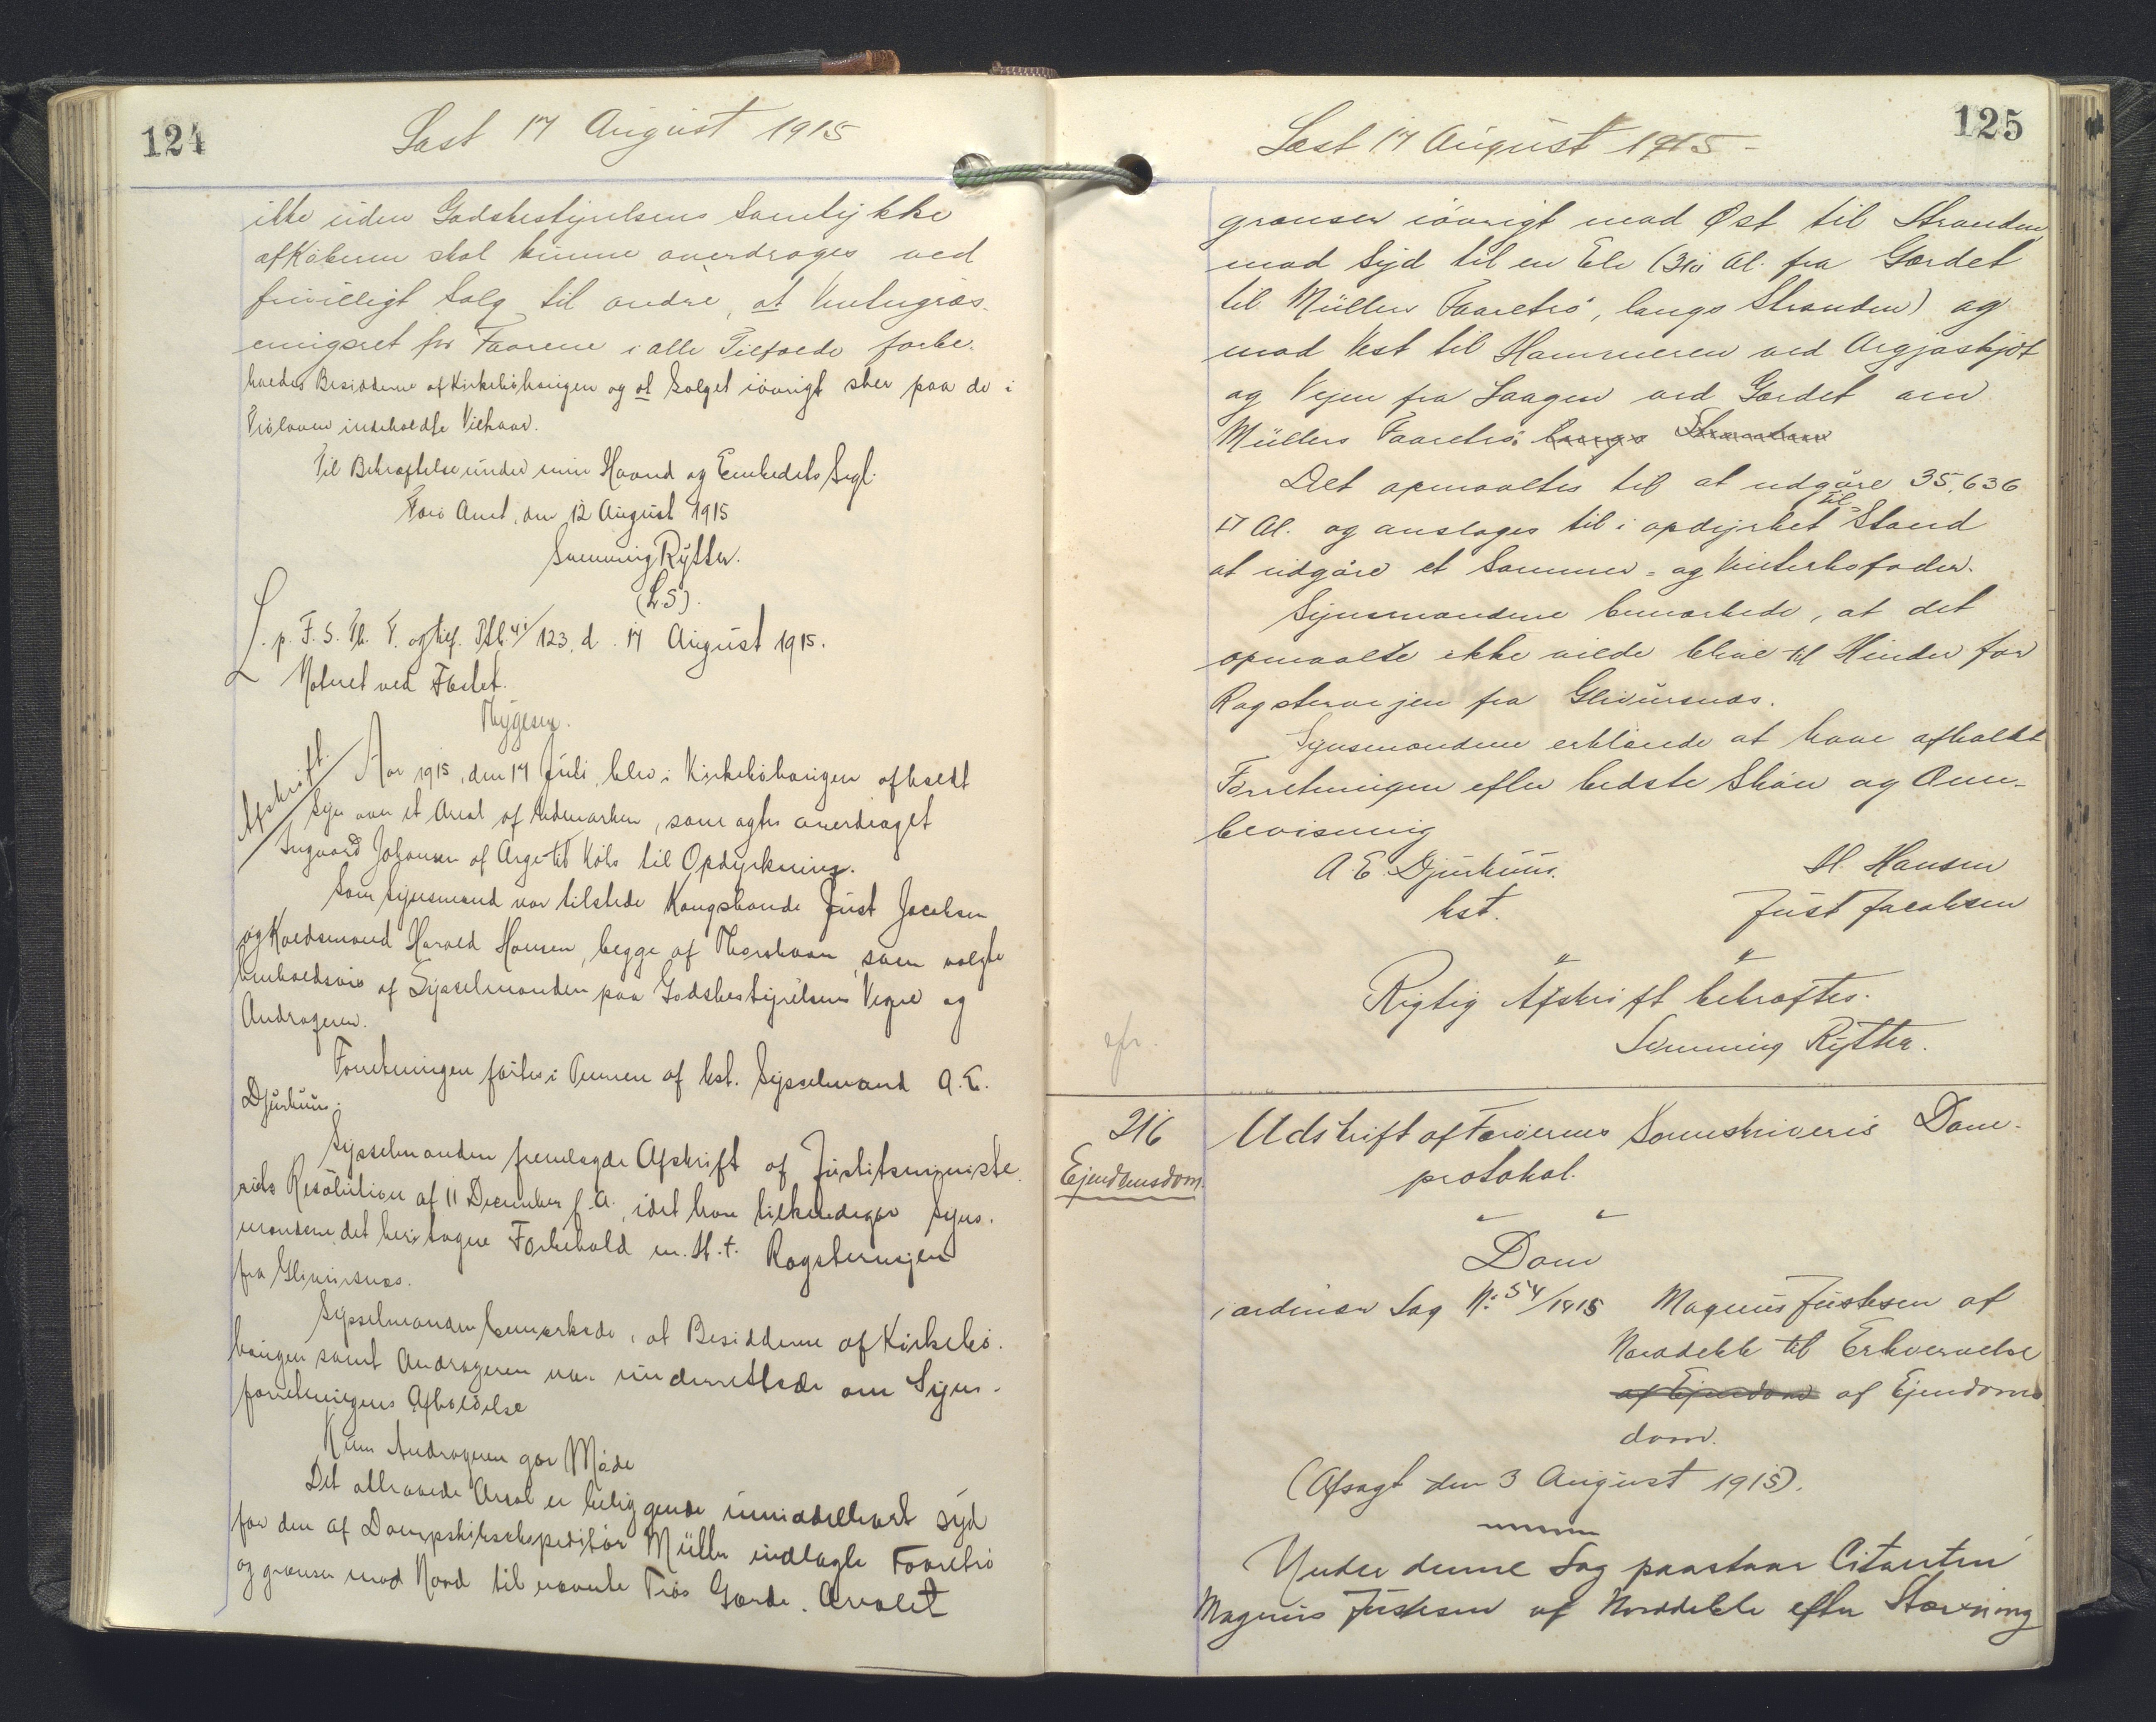 124
Læst 17 August 1915
ikke uden Godsbestyrelsens Samtykke
af Køberen skal kunne overdrages ved
frivilligt Salg til andre, at Vintergræs-
ningsret for Faarene i alle Tilfælde forbe-
holdes Besidderne af Kirkebøhaugen og at Salget iøvrigt sker paa de i
Prisloven indeholdte Vilkaar.
Til Bekræftelse under min Haand og Embedets Segl.
Færø Amt, den 12 August 1915
Svenning Rytter.
(L.S).
L. p. F. S. Th. V. og hef. Ptk. 41/123, d. 17 August 1915.
Noteret ved Fæstet.
Thygesen.
Afskrift.
Aar 1915, den 14 Juli, blev i Kirkebøhaugen afholdt
Syn over et Areal af Udmarken, som agtes overdraget
Ingvard Johansen af Arge til Købs til Opdyrkning.
Som Synsmænd var tilstede Kongsbonde Just Jacobsen
og Koldsmand Harald Hansen, begge af Thorshavn, som valgte
henholdsvis af Sysselmanden paa Godsbestyrelsens Vegne og
Andrageren.
Forretningen førtes i Pennen af kst. Sysselmand A. E.
Djurhuus.
Sysselmanden fremlagde Afskrift af Justitsministe-
riets Resolution af 11 December f. A., idet han tilkendegav Syns-
mændene det heri tagne Forbehold m. H. t. Rogstervejen
fra Glivursnæs.
Sysselmanden bemærkede, at Besidderne af Kirkebø-
haugen samt Andrageren var underrettede om Syns-
forretningens Afholdelse
Kun Andrageren gav Møde
Det attraaede Areal er beliggende umiddelbart syd
for den af Dampskibsekspeditør Müller indlagte Faaretrø
og grænser mod Nord til nævnte Trøs Gærde. Arealet
125
Læst 17 August 1915 -
grænser iøvrigt mod Øst til Stranden,
mod Syd til en Elv (310 Al. fra Gærdet
til Müllers Faaretrø, langs Stranden) og
mod Vest til Hammeren ved Argjaskjøt
og Vejen fra Laagen ved Gærdet om
Müllers Faaretrø. langs Stranden
Det opmaaltes til at udgøre 35,636
□ Al. og ansloges til i opdyrket Til-Stand
at udgøre et Sommer- og Vinterkofoder.
Synsmændene bemærkede, at det
opmaalte ikke vilde blive til Hinder for
Rogstervejen fra Glivursnæs.
Synsmændene erklærede at have afholdt
Forretningen efter bedste Skøn og Over-
bevisning
A. E. Djurhuus. H. Hansen
kst. Just Jacobsen
" "
Rigtig Afskrift bekræftes.
Svenning Rytter.
cfr.
216 Udskrift af Færøernes Sorenskriveris Dom-
Ejendomsdom. protokol.
Dom
i ordinær Sag No 54/1915 Magnus Justesen af
Norddeble til Erhvervelse
af Ejendom af Ejendoms
dom.
(Afsagt den 3 August 1915).
Under denne Sag paastaar Citanten
Magnus Justesen af Norddeble efter Stævning